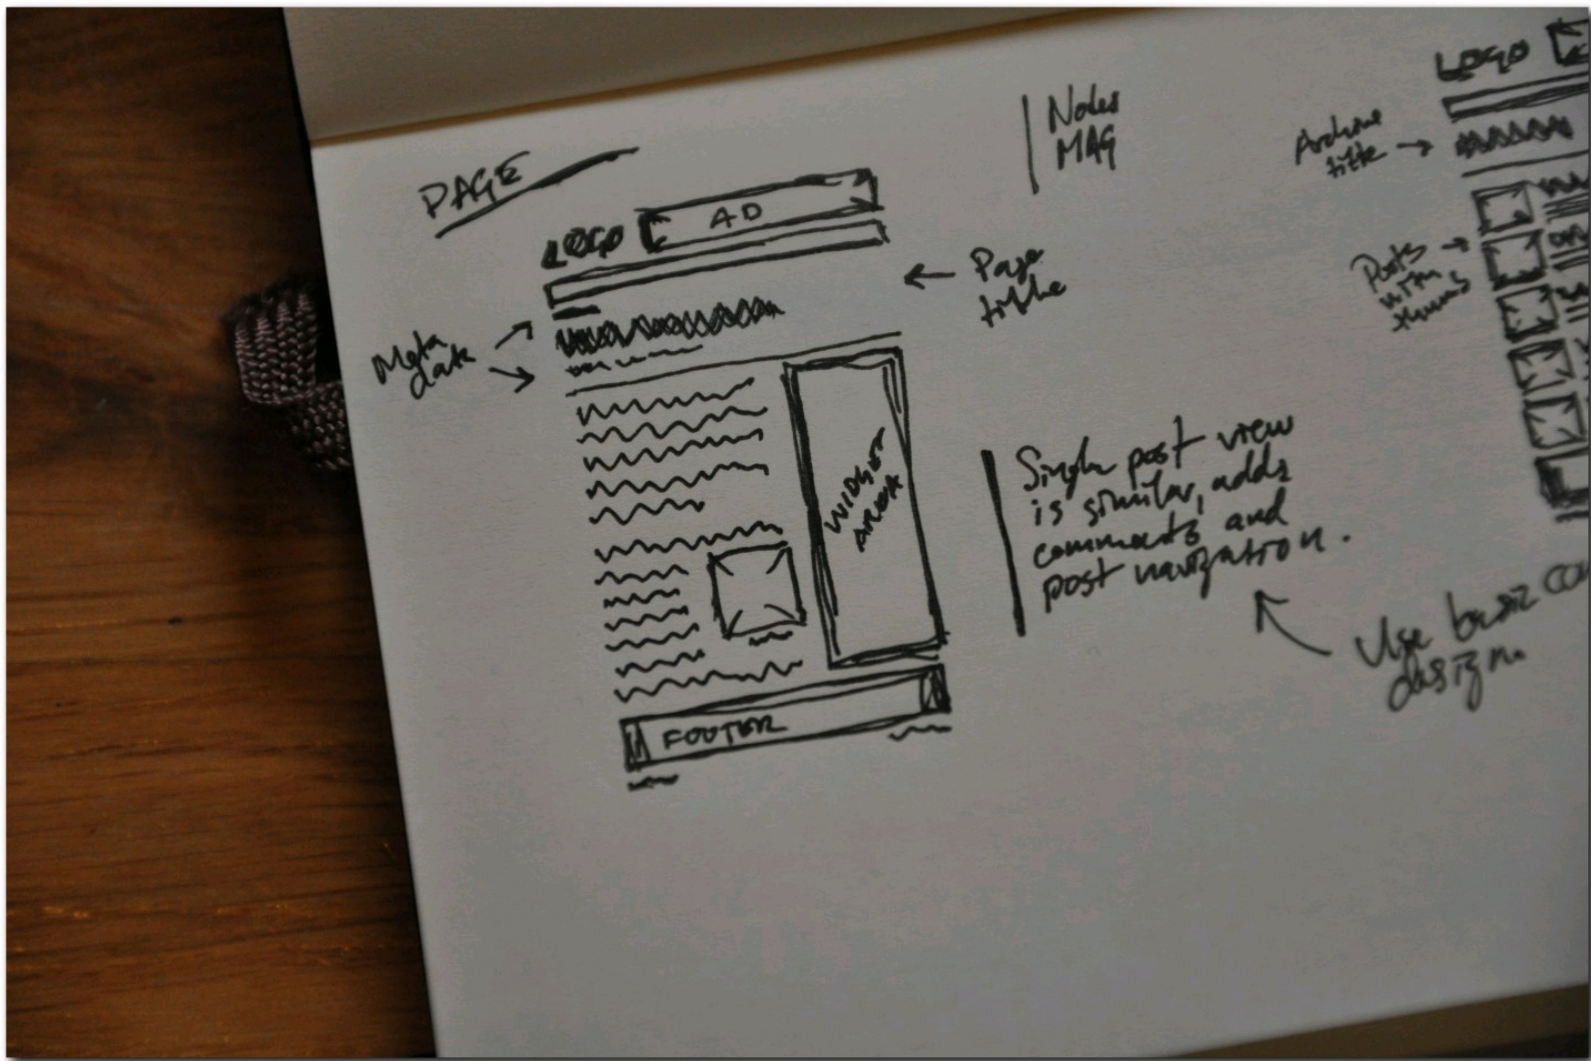 PAGE
LOGO
AD
Page
title
Meta
data
WIDGET
AREA
FOOTER
Notes
MAG
Single post view
is similar, adds
comments and
post navigation.
Use basic
design
LOGO
Archive
title
Posts
with
thumbs